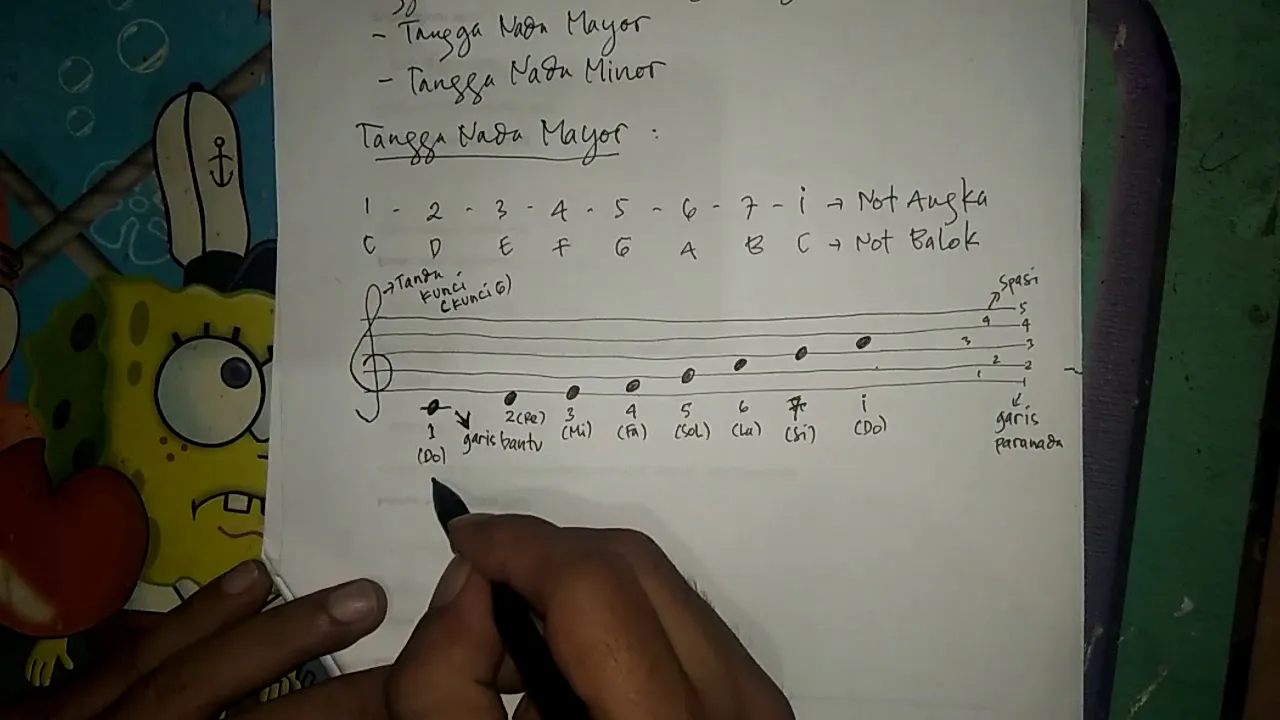 - Tangga Nada Mayor
- Tangga Nada Minor
Tangga Nada Mayor :
1 - 2 - 3 - 4 - 5 - 6 - 7 - i → Not Angka
C D E F G A B C → Not Balok
→ Tanda
Kunci
(Kunci G)
Spasi
5
4 4
3 3
2 2
1 1
1 2(Re) 3 4 5 6 7 i
(Do) garis bantu (Mi) (Fa) (Sol) (La) (Si) (Do)
garis
paranada